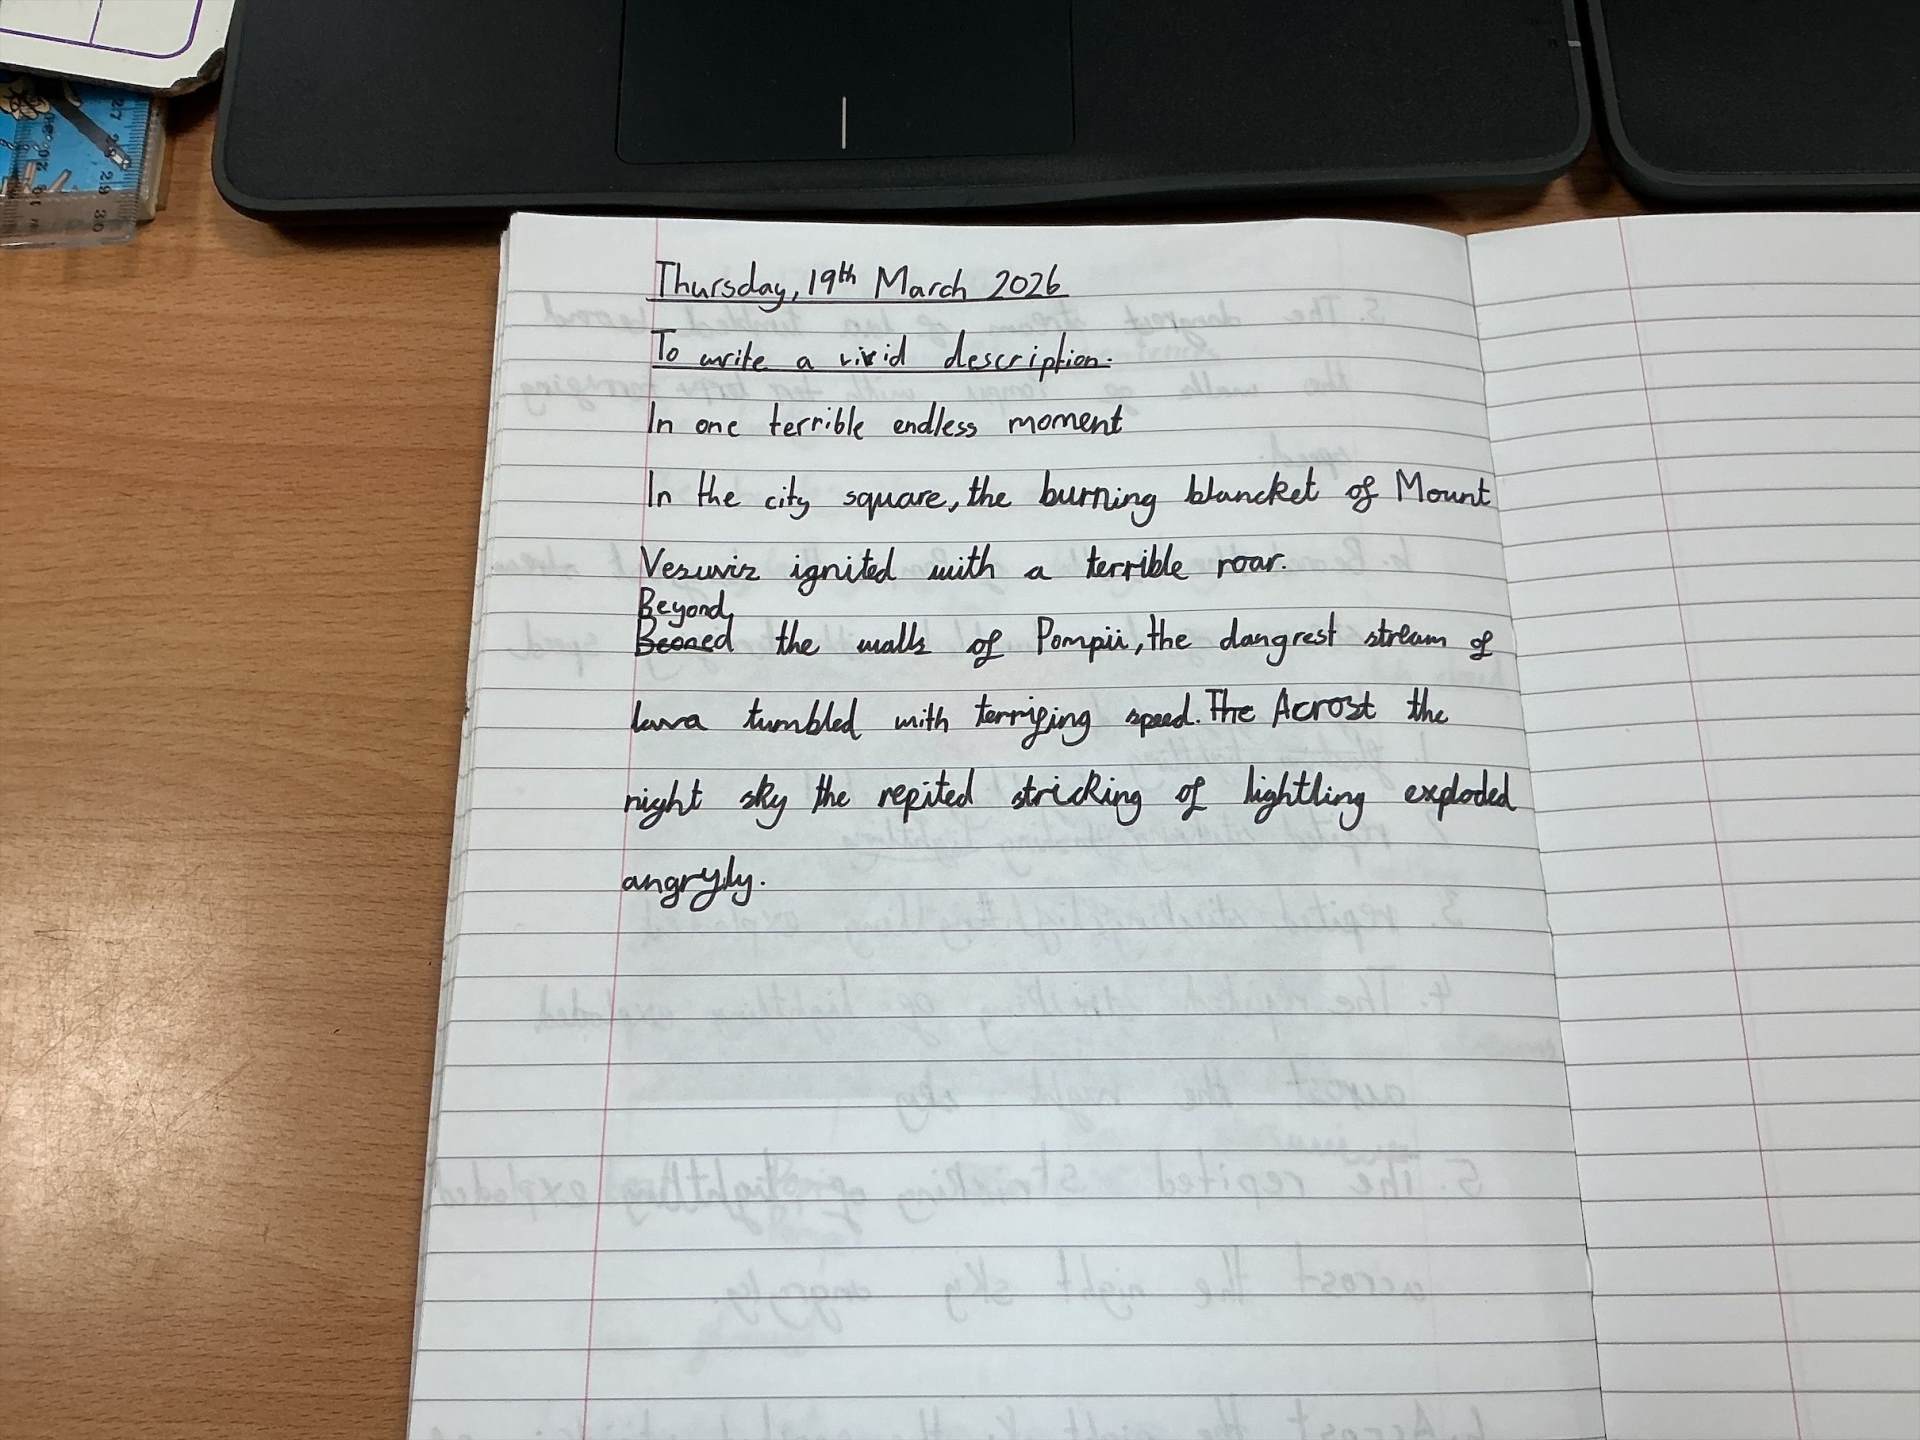 Thursday, 19th March 2026
To write a vivid description.
In one terrible endless moment
In the city square, the burning blancket of Mount
Vesuvis ignited with a terrible roar.
Beyond
Beoned the walls of Pompii, the dangrest stream of
lava tumbled with terrifing speed. The Acrost the
night sky the repited stricking of lightling exploded
angryly.